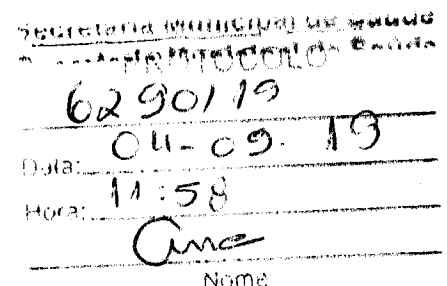 Secretaria Municipal de Saúde
PROTOCOLO de Saúde
6290/19
Data: 04-09-19
Hora: 11:58
Ana
Nome